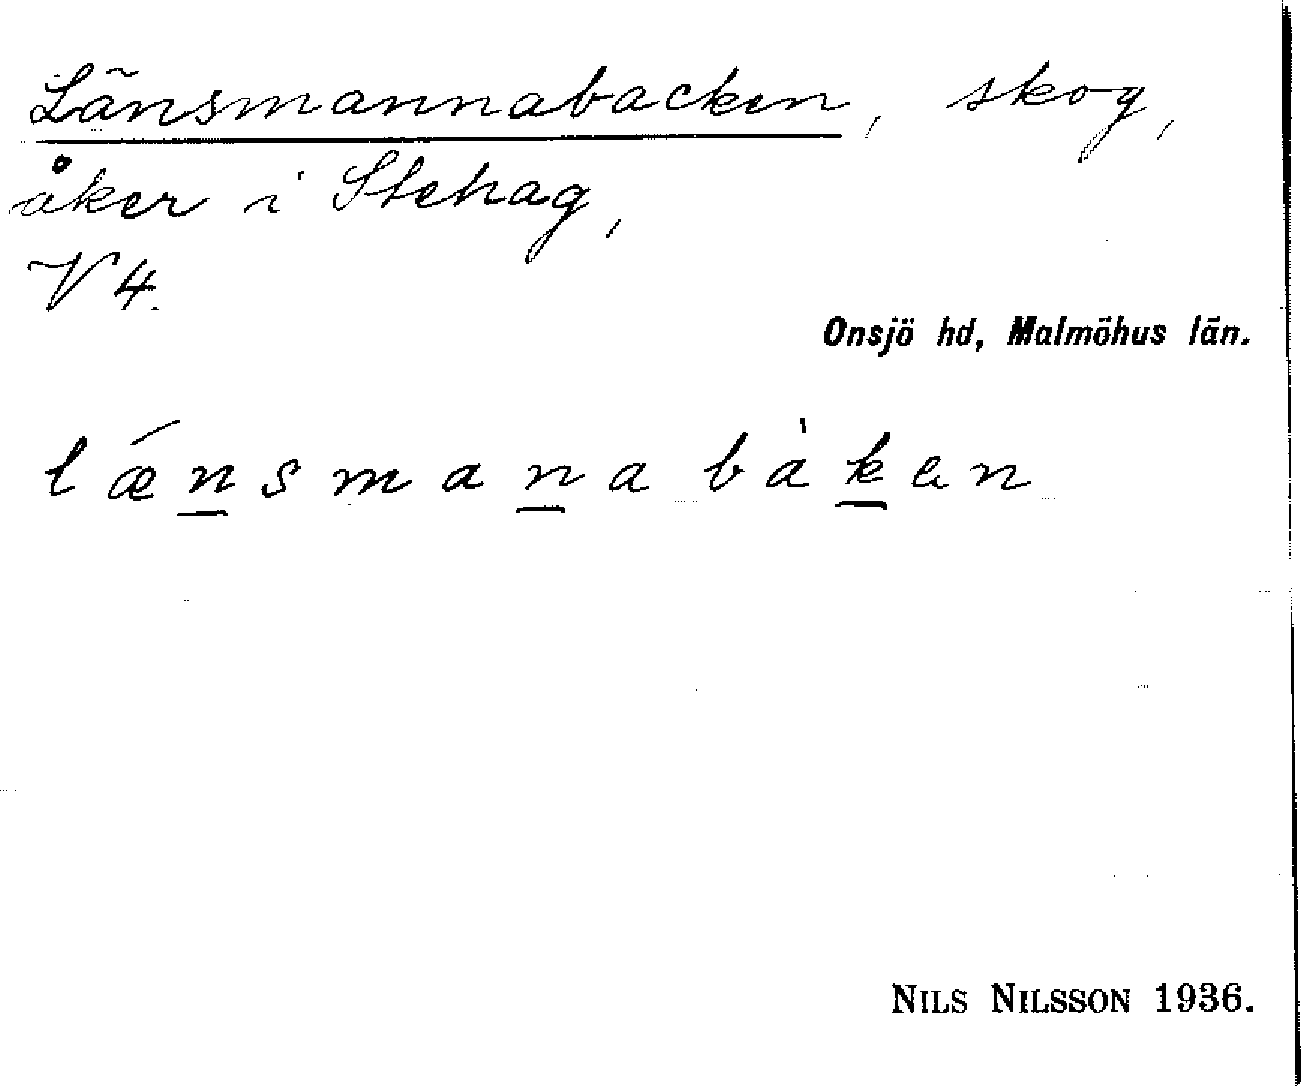 Länsmannabacken, skog,
åker i Stehag,
V 4.
Onsjö hd, Malmöhus län.
lǽnsmanabàken
NILS NILSSON 1936.